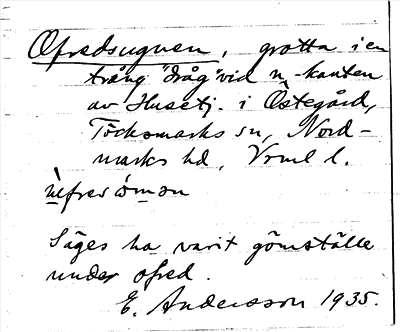 Ofredsugnen, grotta i en
trång "dråg" vid n-kanten
av Husetj. i Östegård,
Töcksmarks sn, Nord-
marks hd, Vrml l.
Säges ha varit gömställe
under ofred.
E. Andersson 1935.